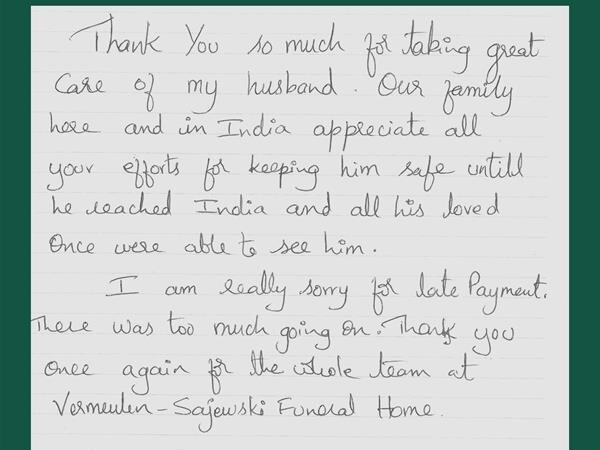 Thank You so much for taking great
Care of my husband. Our family
here and in India appreciate all
your efforts for keeping him safe untill
he reached India and all his loved
Once were able to see him.
I am really sorry for late Payment.
There was too much going on. Thank you
once again for the whole team at
Vermeulen-Sajewski Funeral Home.